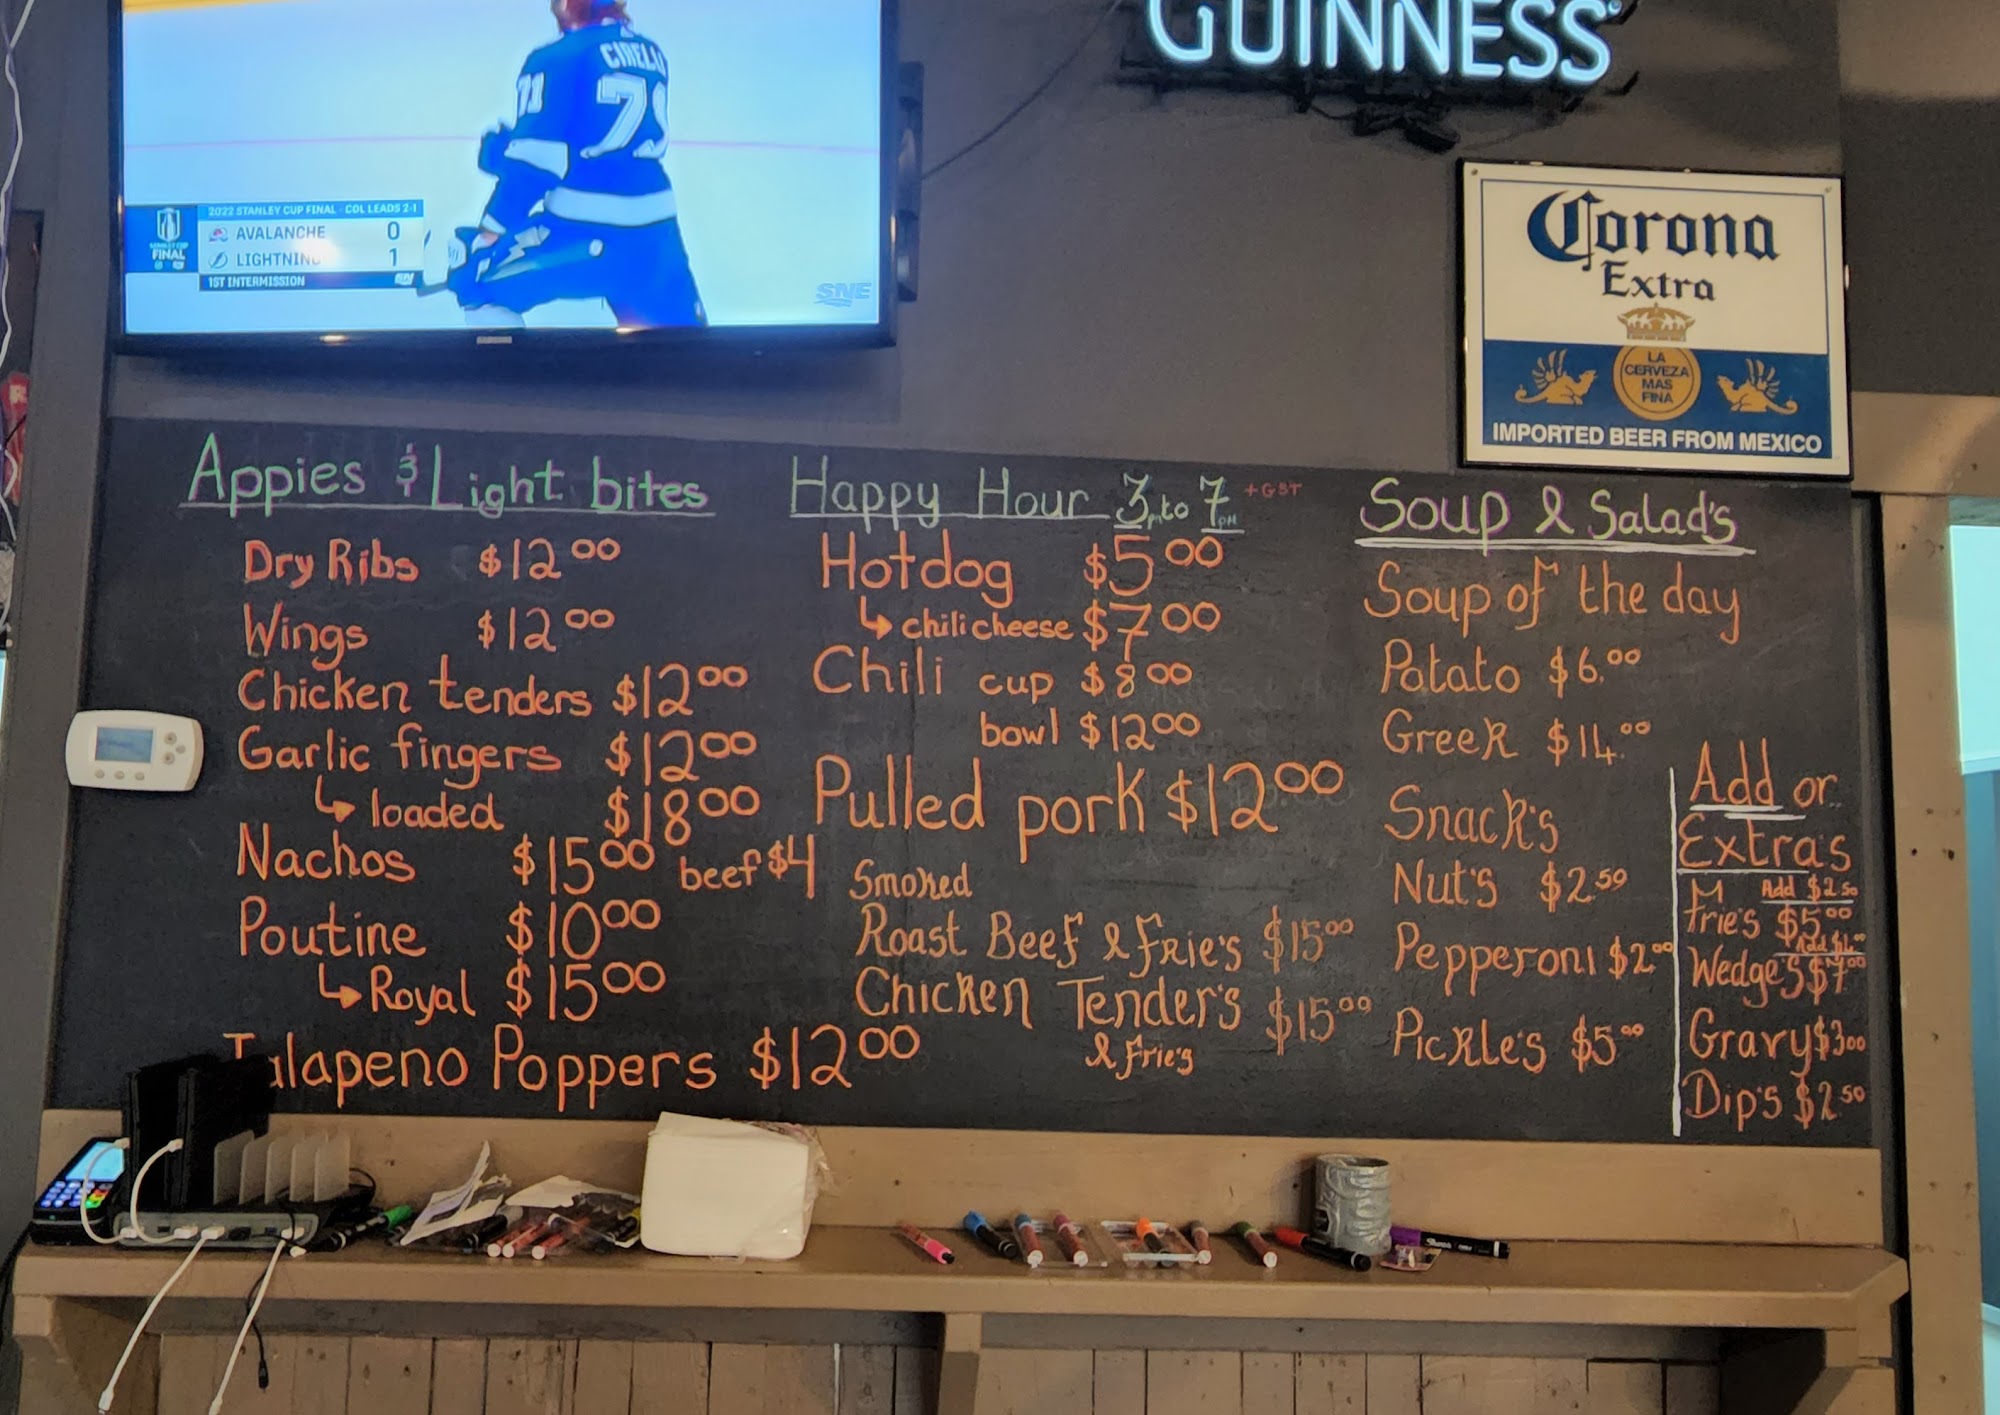 CIRELLI
71
71
2022 STANLEY CUP FINAL - COL LEADS 2-1
AVALANCHE 0
LIGHTNING 1
1ST INTERMISSION
STANLEY CUP
FINAL
SNE
GUINNESS
Corona
Extra
LA
CERVEZA
MAS
FINA
IMPORTED BEER FROM MEXICO
Appies & Light bites
Dry Ribs $12 00
Wings $12 00
Chicken tenders $12 00
Garlic fingers $12 00
↳ loaded $18 00
Nachos $15 00 beef $4
Poutine $10 00
↳ Royal $15 00
Jalapeno Poppers $12 00
Happy Hour 3pm to 7pm + GST
Hotdog $5 00
↳ chili cheese $7 00
Chili cup $8 00
bowl $12 00
Pulled pork $12 00
Smoked
Roast Beef & Frie's $15 00
Chicken Tender's $15 00
& Frie's
Soup & Salad's
Soup of the day
Potato $6.00
Greek $14.00
Snack's
Nut's $2 50
Pepperoni $2 00
Pickle's $5 00
Add or
Extra's
Add $2 50
Frie's $5 00
Wedge's $7 00
Gravy $3 00
Dip's $2 50